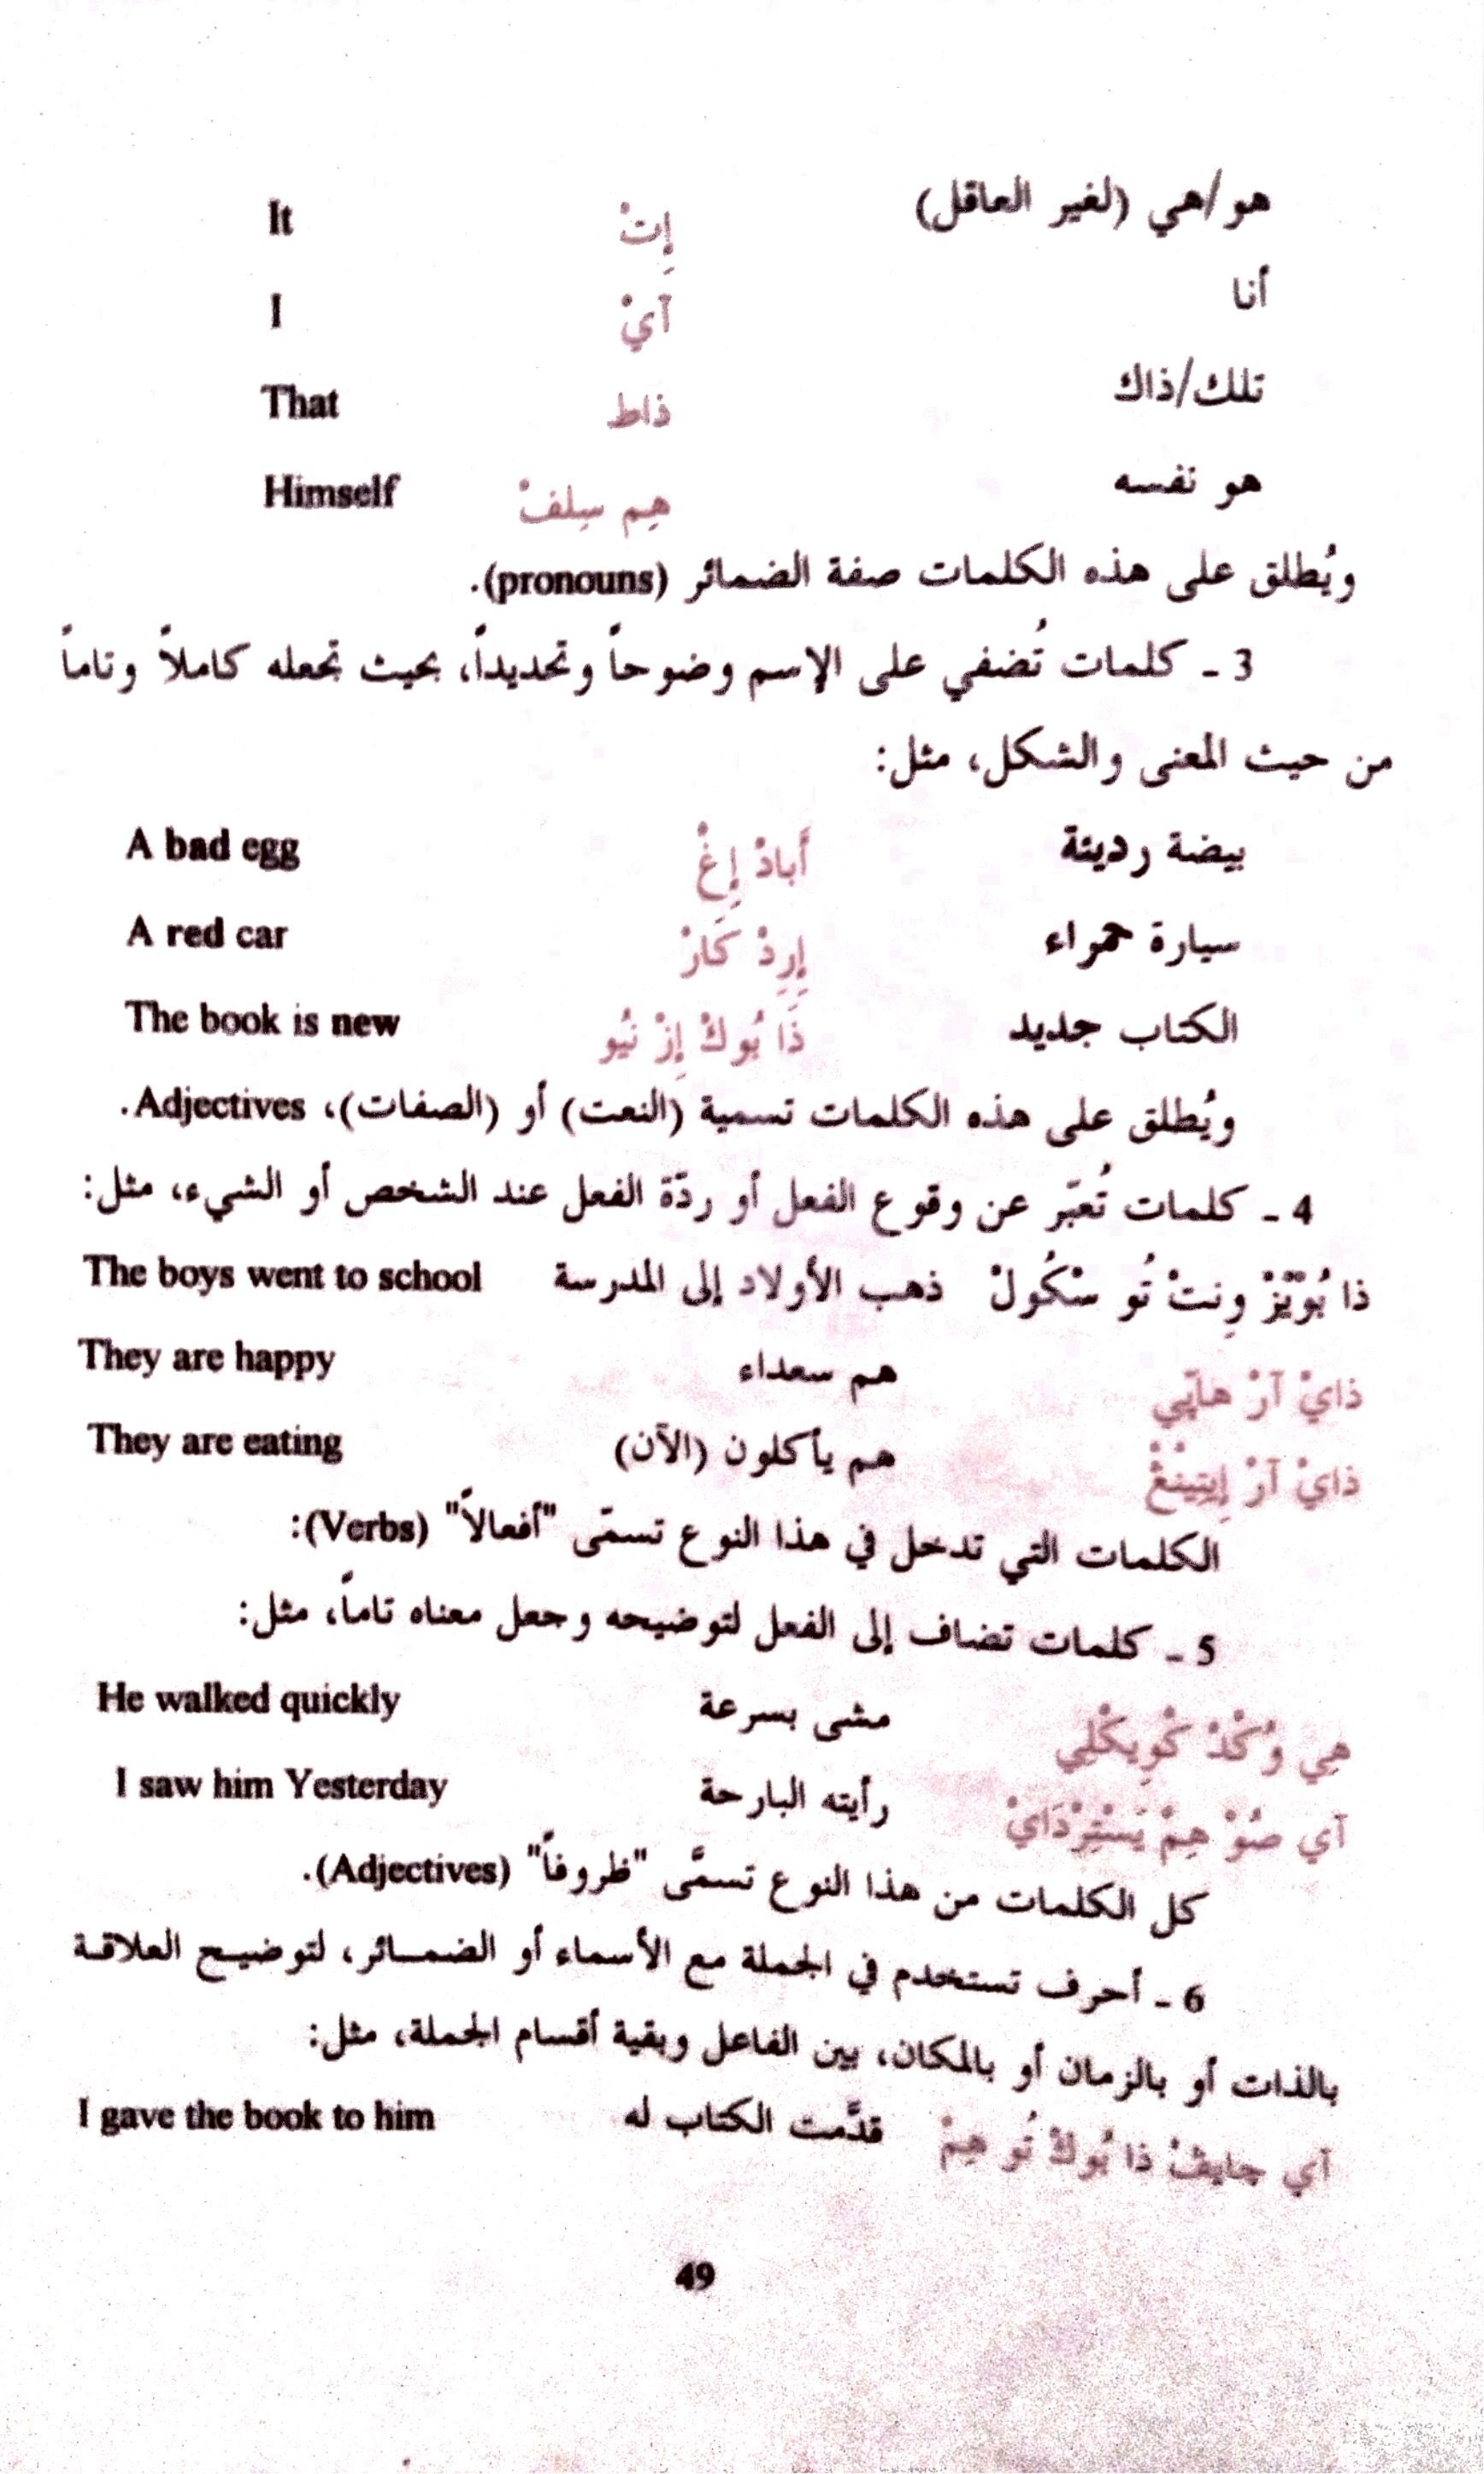 هو/هي (لغير العاقل) إِتْ It
أنا آيْ I
تلك/ذاك ذاط That
هو نفسه هِم سِلفْ Himself
ويُطلق على هذه الكلمات صفة الضمائر (pronouns).
3 ـ كلمات تُضفي على الإسم وضوحاً وتحديداً، بحيث تجعله كاملاً وتاماً
من حيث المعنى والشكل، مثل:
بيضة رديئة أَبادْ إِغْ A bad egg
سيارة حمراء إِرِدْ كَارْ A red car
الكتاب جديد ذَا بُوكْ إِزْ نْيُو The book is new
ويُطلق على هذه الكلمات تسمية (النعت) أو (الصفات)، Adjectives.
4 ـ كلمات تُعبّر عن وقوع الفعل أو ردّة الفعل عند الشخص أو الشيء، مثل:
ذا بُوْيْزْ وِنتْ تُو سْكُولْ ذهب الأولاد إلى المدرسة The boys went to school
ذايْ آرْ هاپّي هم سعداء They are happy
ذايْ آرْ إِيتِينْغْ هم يأكلون (الآن) They are eating
الكلمات التي تدخل في هذا النوع تسمّى "أفعالاً" (Verbs):
5 ـ كلمات تضاف إلى الفعل لتوضيحه وجعل معناه تاماً، مثل:
هِي وُكْدْ كْوِيكْلِي مشى بسرعة He walked quickly
آي صُوْ هِمْ يَسْتِرْدَايْ رأيته البارحة I saw him Yesterday
كل الكلمات من هذا النوع تسمَّى "ظروفاً" (Adjectives).
6 ـ أحرف تستخدم في الجملة مع الأسماء أو الضمـائر، لتوضيـح العلاقة
بالذات أو بالزمان أو بالمكان، بين الفاعل وبقية أقسام الجملة، مثل:
آي جايڤْ ذا بُوكْ تُو هِمْ قدَّمت الكتاب له I gave the book to him
49